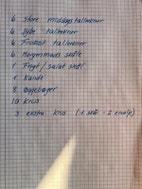 6 store middagstallerkner
6 dybe tallerkner
6 Frokost tallerkner
6 Morgenmads skåle
1 Frugt / salat skål
1 Kande
8 Bagebæger
10 krus
3 ekstra krus (1 små - 2